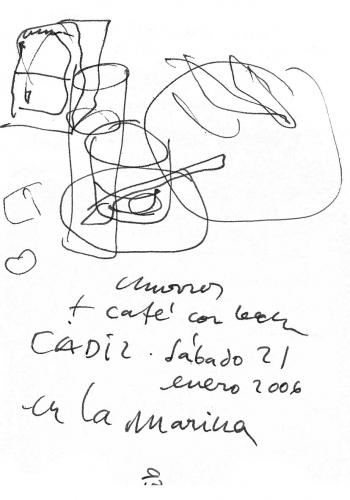 churros
+ café con leche
CADIZ. Sábado 21
enero 2006
en la Marina